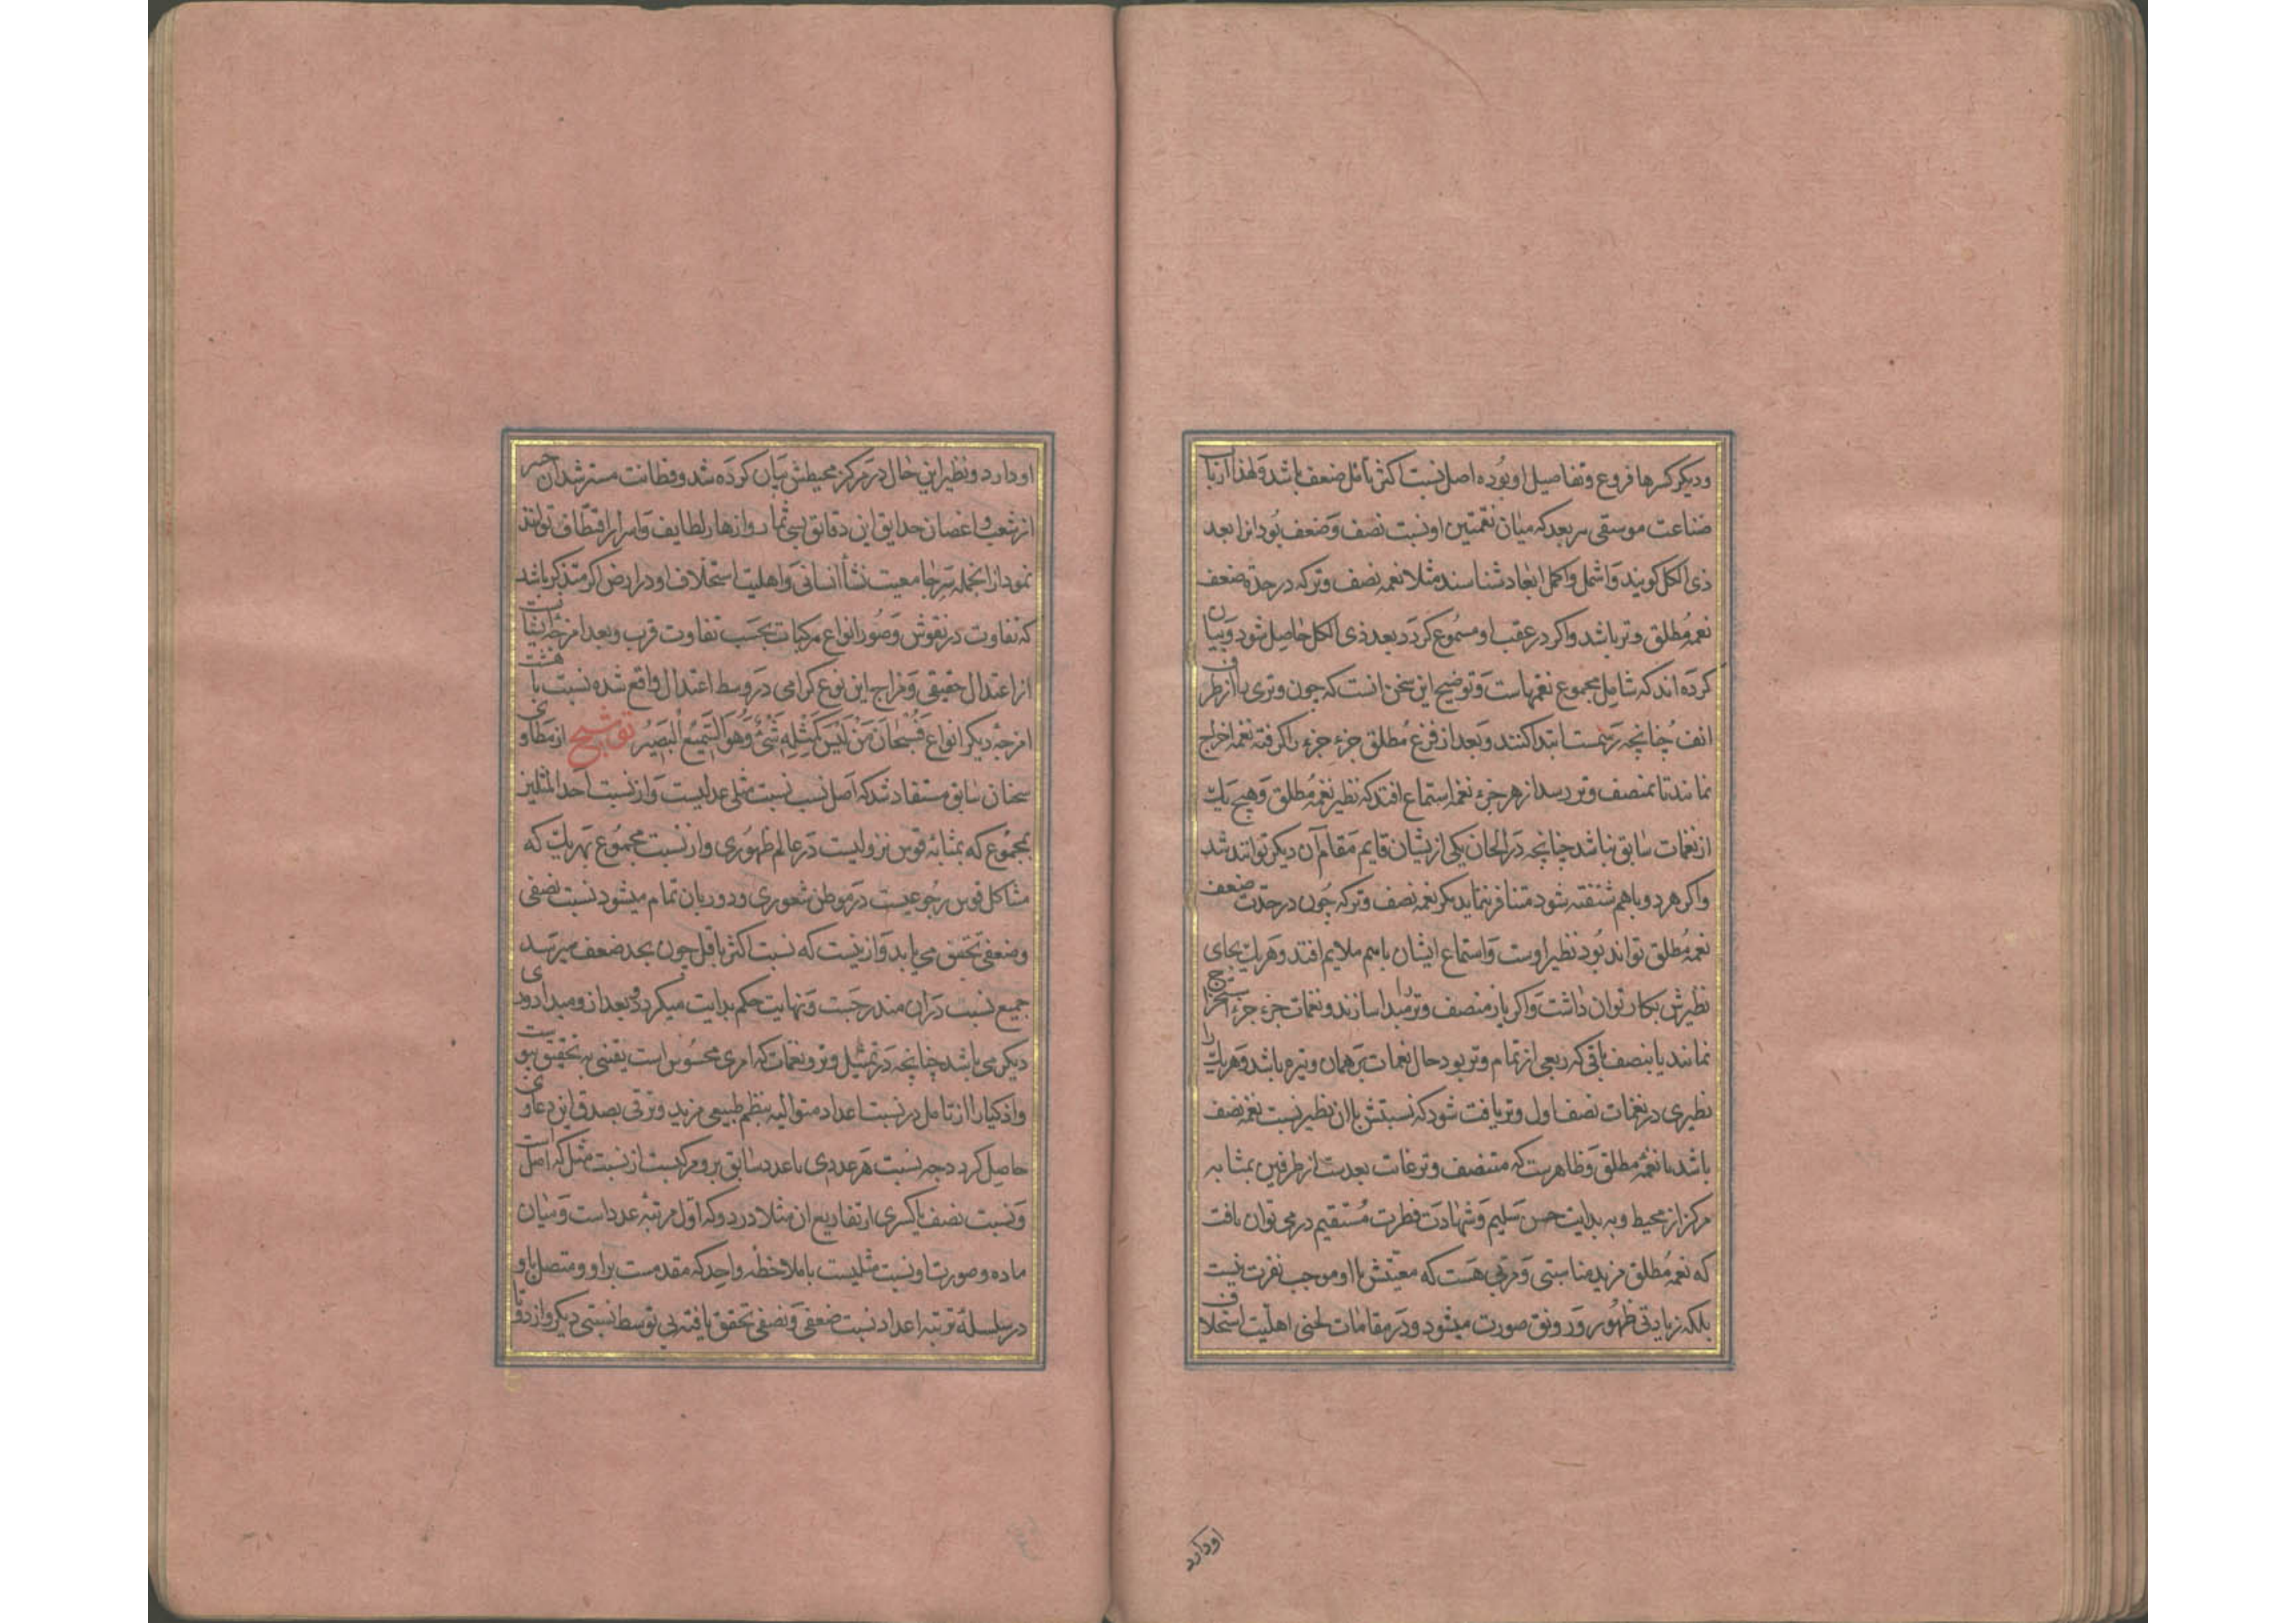 ودیکر کسرها فروع وتفاصیل او بوده اصل نسبت اکثر باقل ضعف باشد ولهذا ارباب
صناعت موسقی هر بعد که میان نغمتین او نسبت نصف وضعف بود انرا بعد
ذی الکل کویند واشمل واکمل ابعاد شناسند مثلا نغمه نصف وتر که در حدة ضعف
نغمه مطلق وتر باشد واکر در عقب او مسموع کردد بعد ذی الکل حاصل شود وبیان
کرده اند که شامل مجموع نغمهاست وتوضیح این سخن انست که چون وتری را از طرف
انف چنانچه رسمست ابتدا کنند وبعد از قرع مطلق جزء جزء را کرفته نغمه اخراج
نمایند تا بمنصف وتر رسد از هر جزء نغمه استماع افتد که نظیر نغمه مطلق وهیچ یک
از نغمات سابق نباشد چنانچه در الحان یکی ازیشان قایم مقام آن دیکر توانند شد
واکر هر دو باهم شنفته شود متنافر نماید مکر نغمه نصف وتر که چون در حدت ضعف
نغمه مطلق تواند بود نظیر اوست واستماع ایشان باهم ملایم افتد وهر یک بجای
نظیرش بکار توان داشت واکر باز منصف وتر را مبدا سازند ونغمات جزء جزء استخراج
نمایند یا بنصف باقی که ربعی از تمام وتر بود حال نغمات بر همان وتیره باشد وهر یک را
نظیری در نغمات نصف اول وتر یافت شود که نسبتش با ان نظیر نسبت نغمه نصف
باشد با نغمه مطلق وظاهرست که منتصف وتر غایت بعدست از طرفین بمثابه
مرکز از محیط وبه بدایت حس سلیم وشهادت فطرت مستقیم در می توان یافت
که نغمه مطلق مزید مناسبتی وقربی هست که معیتش با او موجب نفرت نیست
بلکه زیادتی ظهور ورونق صورت میشود ودر مقامات لحنی اهلیت استخلاف
اودارد
او دارد ونظیر این حال در مرکز محیطش بیان کرده شد وفطانت مسترشدان خبیر
از شعب واغصان حدایق این دقائق بسی ثمار وازهار لطایف واسرار اقتطاف توانند
نمود ازانجمله سر جامعیت نشأ انسانی واهلیت استخلاف او در ارض اکر متذکر باشد
که تفاوت در نقوش وصور انواع مرکبات بحسب تفاوت قرب وبعد امزجه ایشانست
از اعتدال حقیقی ومزاج این نوع کرامی در وسط اعتدال واقع شده نسبت با هشت
امزجه دیکر انواع فسبحان من لیس کمثله شیء وهو السمیع البصیر توشیح از مطاوی
سخنان سابق مستفاد شد که اصل نسب نسبت مثلی عدلیست واز نسبت احد المثلین
بمجموع که بمثابه قوس نزولیست در عالم ظهوری واز نسبت مجموع بهر یک که
مشاکل قوس رجوعیست در موطن شعوری ودوریان تمام میشود نسبت نصفی
وضعفی تحقق می یابد وازینست که نسبت اکثر باقل چون بحد ضعف میرسد
جمیع نسبت دران مندرجست ونهایت حکم بدایت میکیرد وبعد ازو مبدا دوری
دیکر می باشد چنانچه در تمثیل وتر ونغمات که امری محسوس است یقینی به تحقیق پیوست
واذکیا را از تامل در نسبت اعداد متوالیه بنظم طبیعی مزید وثوقی بصدق این دعاوی
حاصل کردد چه نسبت هر عددی با عدد سابق برو مرکبست از نسبت مثل که اصل است
ونسبت نصف یا کسری از تفاریع ان مثلا در دو که اول مرتبه عدد است ومیان
ماده وصورت او نسبت مثلیست با ملاحظه واحد که مقدمست براو ومتصل باو
در سلسله ترتبه اعداد نسبت ضعفی ونصفی تحقق یافته بی توسط نسبتی دیکر واز دقا